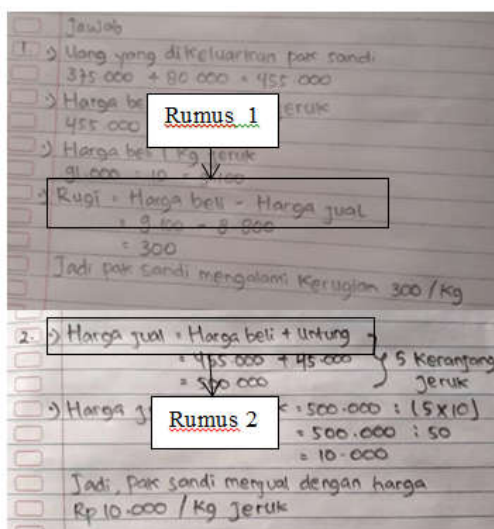 Jawab
1. •) Uang yang dikeluarkan pak sandi
375.000 + 80.000 = 455.000
•) Harga be
eruk
455.000
Rumus 1
•) Harga beli 1 kg jeruk
91.000 : 10 = 9.100
•) Rugi = Harga beli - Harga jual
= 9.100 - 8.800
= 300
Jadi pak sandi mengalami kerugian 300/kg
2. •) Harga jual = Harga beli + Untung
= 455.000 + 45.000
= 500.000
5 Keranjang
Jeruk
•) Harga j
Rumus 2
= 500.000 : (5x10)
= 500.000 : 50
= 10.000
Jadi, pak sandi menjual dengan harga
Rp 10.000 / kg jeruk